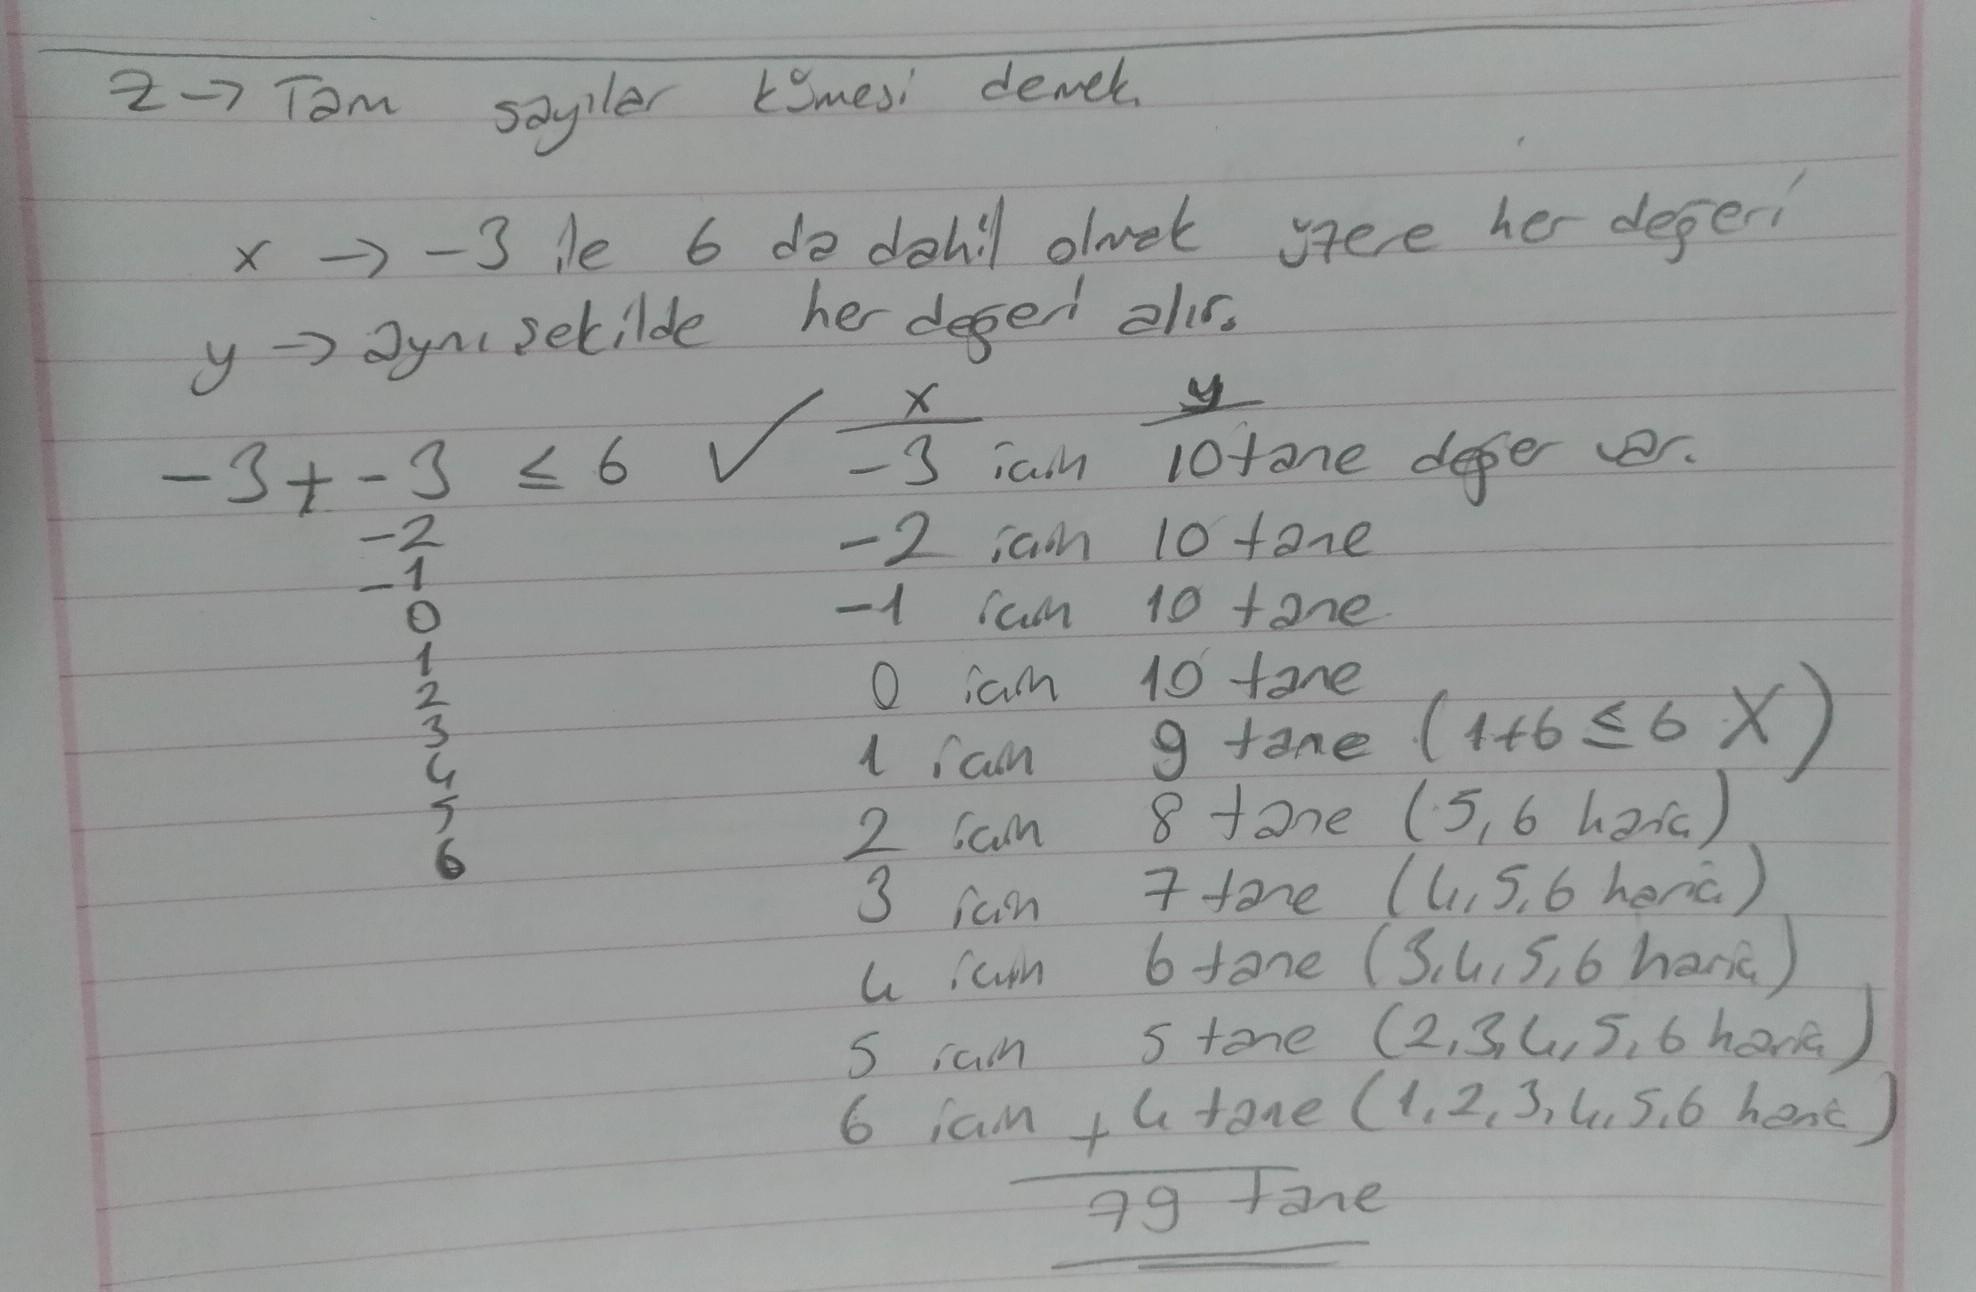 Z → Tam sayılar kümesi demek.
x → -3 ile 6 da dahil olmak üzere her değeri
y → aynı şekilde her değeri alır.
x y
-3 + -3 ≤ 6 ✓ -3 için 10 tane değer var.
-2 -2 için 10 tane
-1 -1 için 10 tane
0 0 için 10 tane
1 1 için 9 tane (1+6 ≤ 6 X)
2 2 için 8 tane (5,6 hariç)
3 3 için 7 tane (4,5,6 hariç)
4 4 için 6 tane (3,4,5,6 hariç)
5 5 için 5 tane (2,3,4,5,6 hariç)
6 6 için + 4 tane (1,2,3,4,5,6 hariç)
79 tane